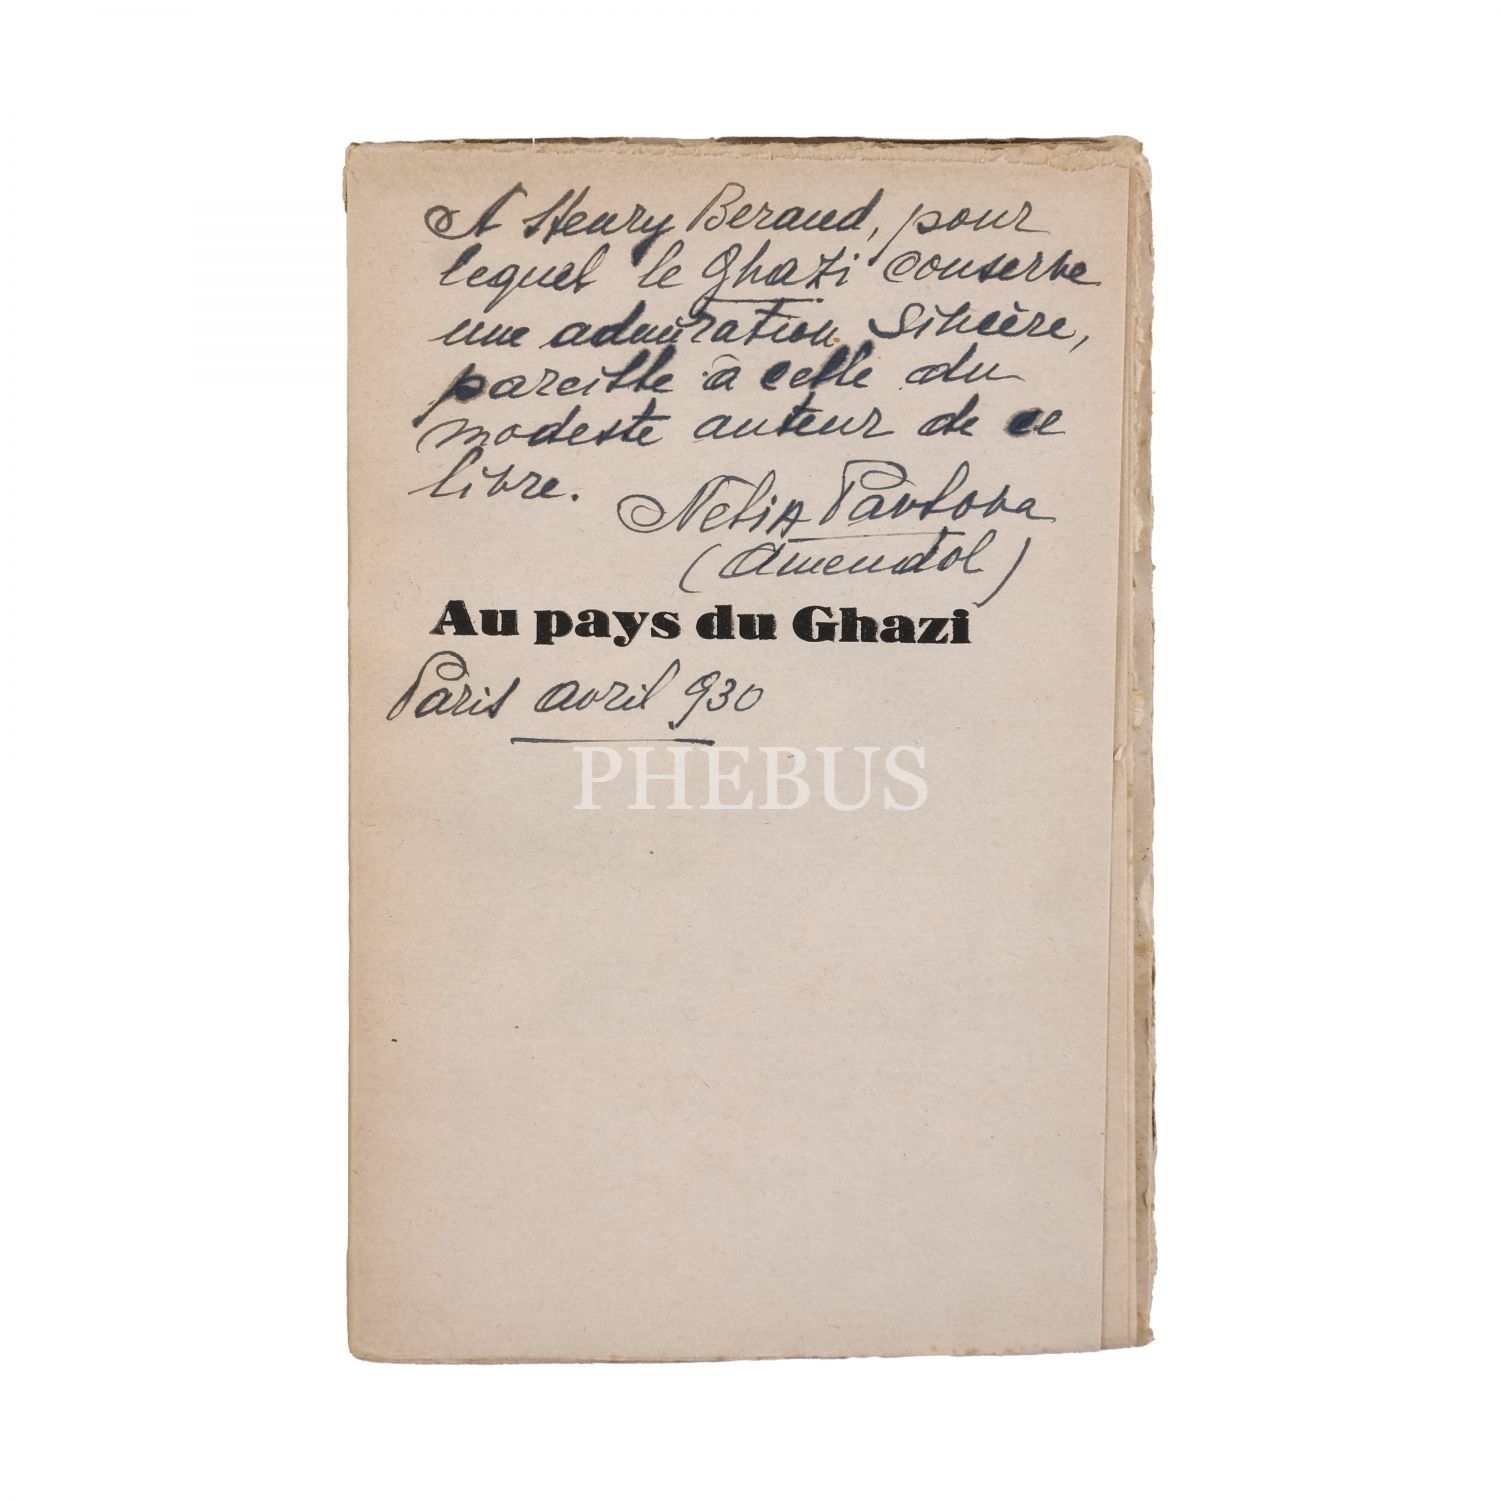 A Henry Beraud, pour
lequel le Ghazi conserve
une admiration sincère,
pareille à celle du
modeste auteur de ce
livre.
Nelia Pavlova
(Amendol)
Au pays du Ghazi
Paris avril 930
PHEBUS